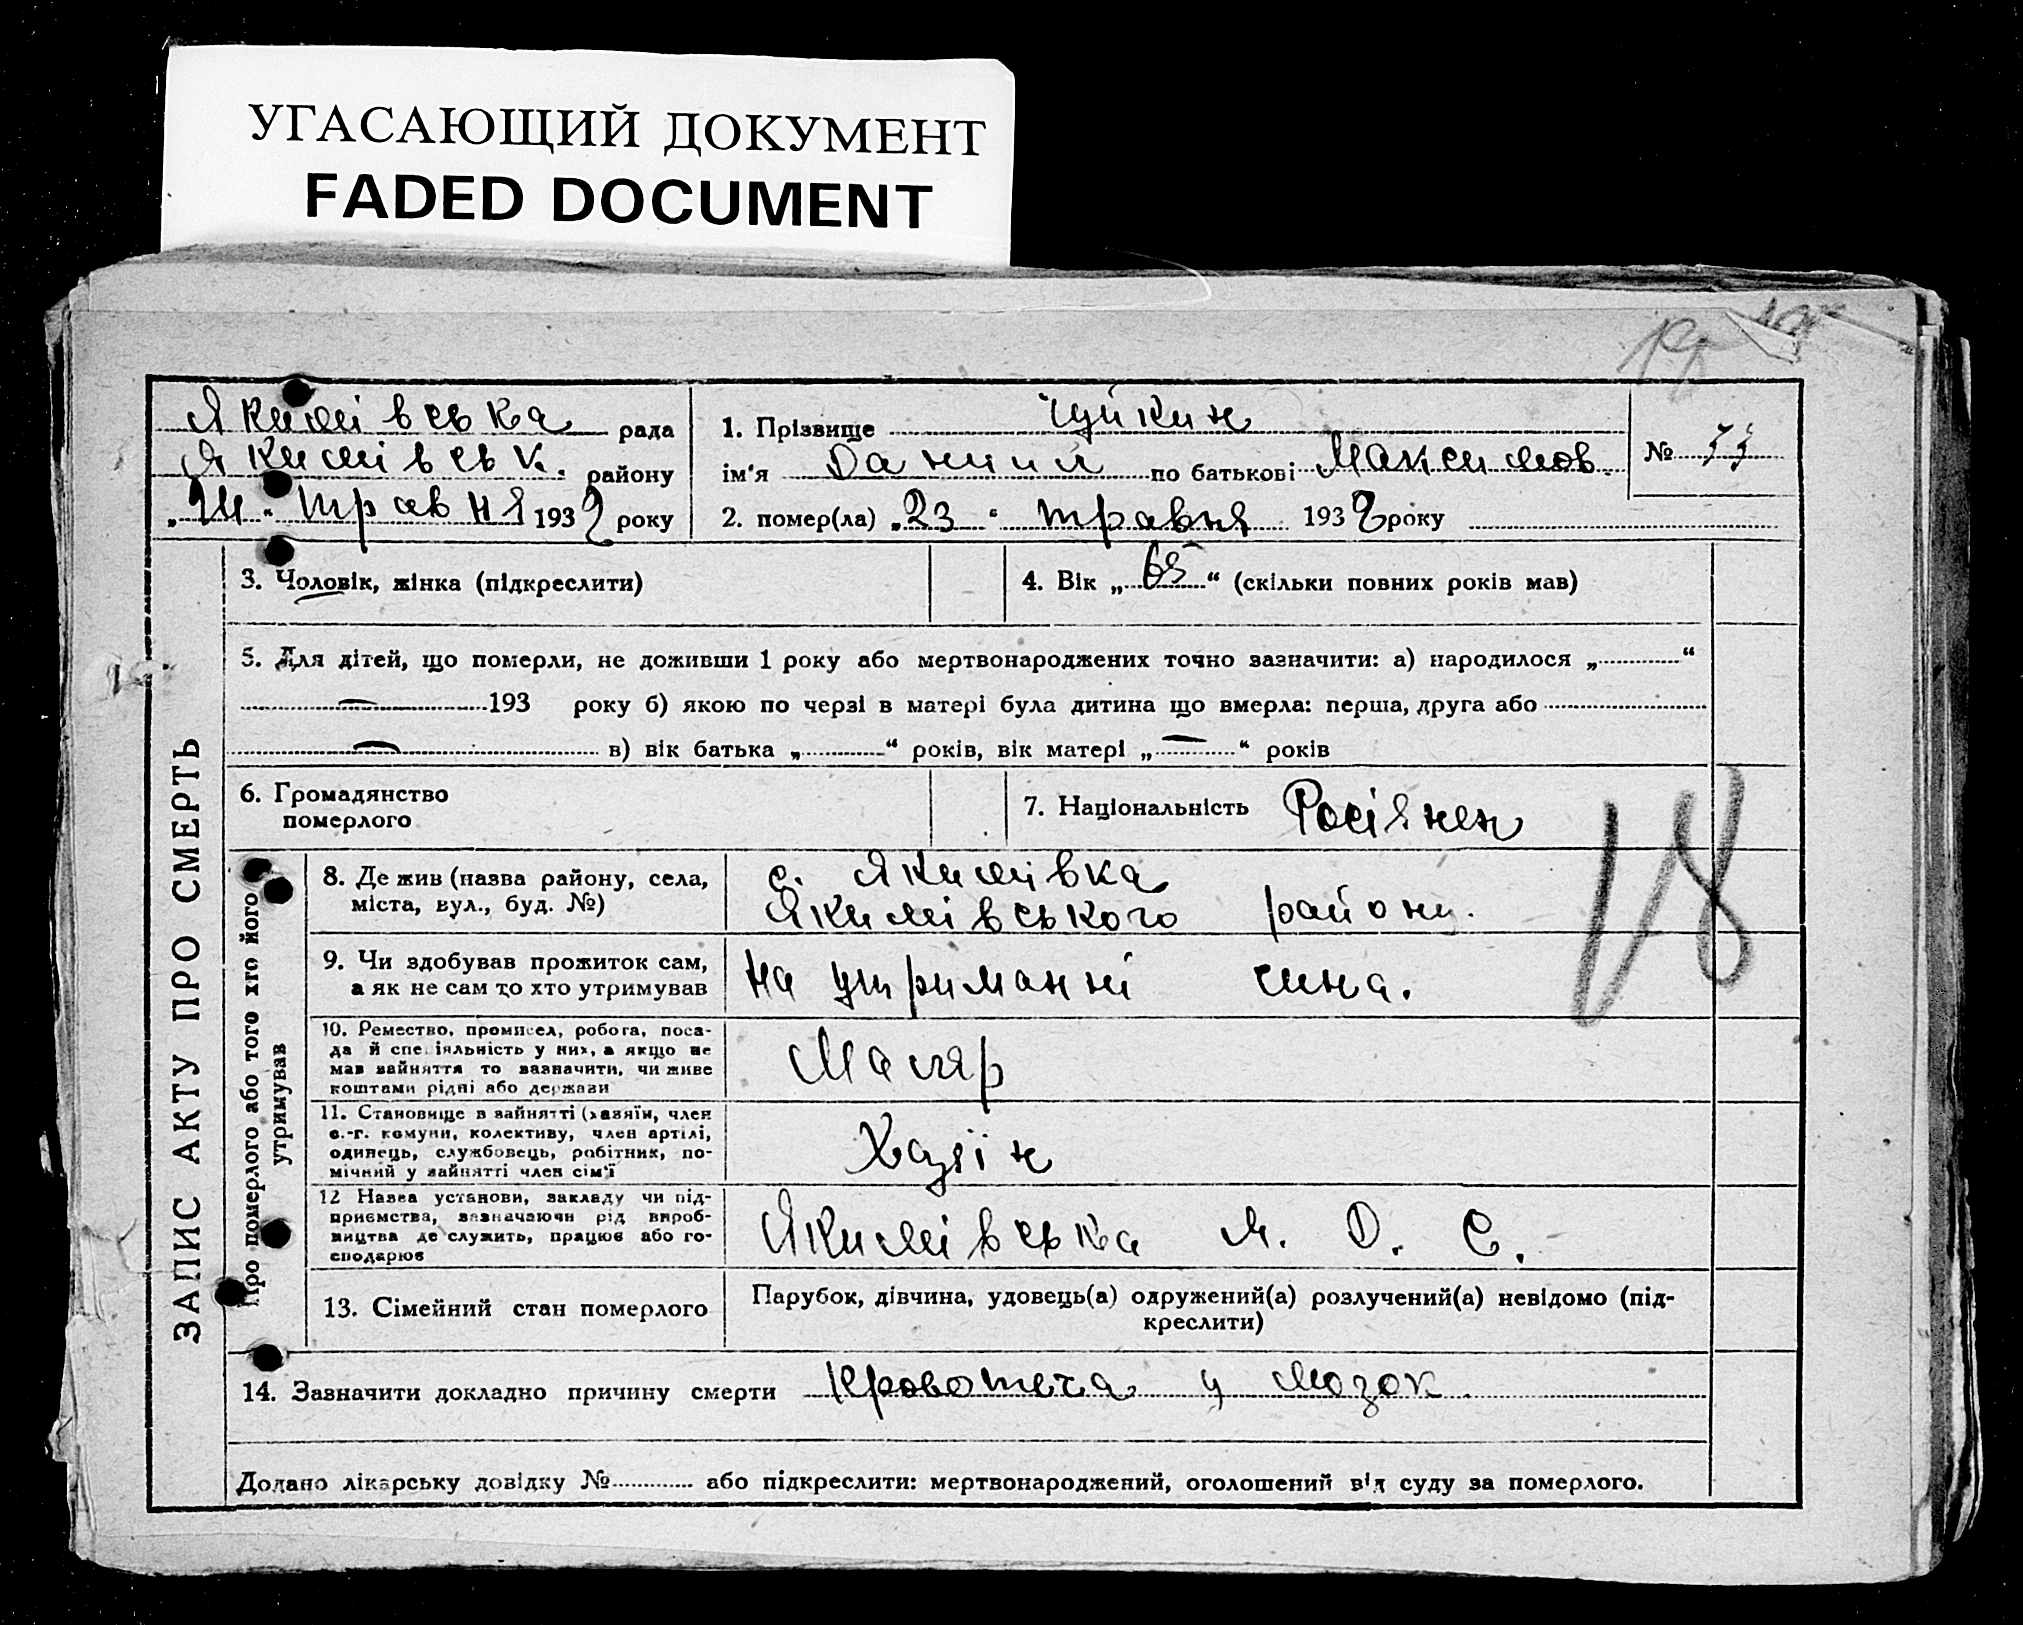 УГАСАЮЩИЙ ДОКУМЕНТ
FADED DOCUMENT
Якимівська рада
Якимівськ. району
„24“ травня 1932 року
1. Прізвище Чуйкин
ім'я Данил по батькові Максимов.
№ 33
2. помер(ла) „23“ травня 1932 року
3. Чоловік, жінка (підкреслити)
4. Вік „65“ (скільки повних років мав)
5. Для дітей, що померли, не доживши 1 року або мертвонароджених точно зазначити: а) народилося „ “
— 193 року б) якою по черзі в матері була дитина що вмерла: перша, друга або
— в) вік батька „ “ років, вік матері „—“ років
6. Громадянство
померлого
7. Національність Росіянен
ЗАПИС АКТУ ПРО СМЕРТЬ
Про померлого або того хто його
утримував
8. Де жив (назва району, села,
міста, вул., буд. №)
с. Якимівка
Якимівського району.
9. Чи здобував прожиток сам,
а як не сам то хто утримував
На утриманні сина.
18
10. Ремество, промисел, робота, поса-
да й спеціяльність у них, а якщо не
мав зайняття то зазначити, чи живе
коштами рідні або держави
Маляр
11. Становище в зайнятті (хазяїн, член
с.-г. комуни, колективу, член артілі,
одинець, службовець, робітник, по-
мічний у зайнятті член сім'ї
Хазяїн
12 Назва установи, закладу чи під-
приємства, зазначаючи рід вироб-
ництва де служить, працює або го-
сподарює
Якимівська М. О. С.
13. Сімейний стан померлого
Парубок, дівчина, удовець(а) одружений(а) розлучений(а) невідомо (під-
креслити)
14. Зазначити докладно причину смерти кровотеча у мозок
Додано лікарську довідку № або підкреслити: мертвонароджений, оголошений від суду за померлого.